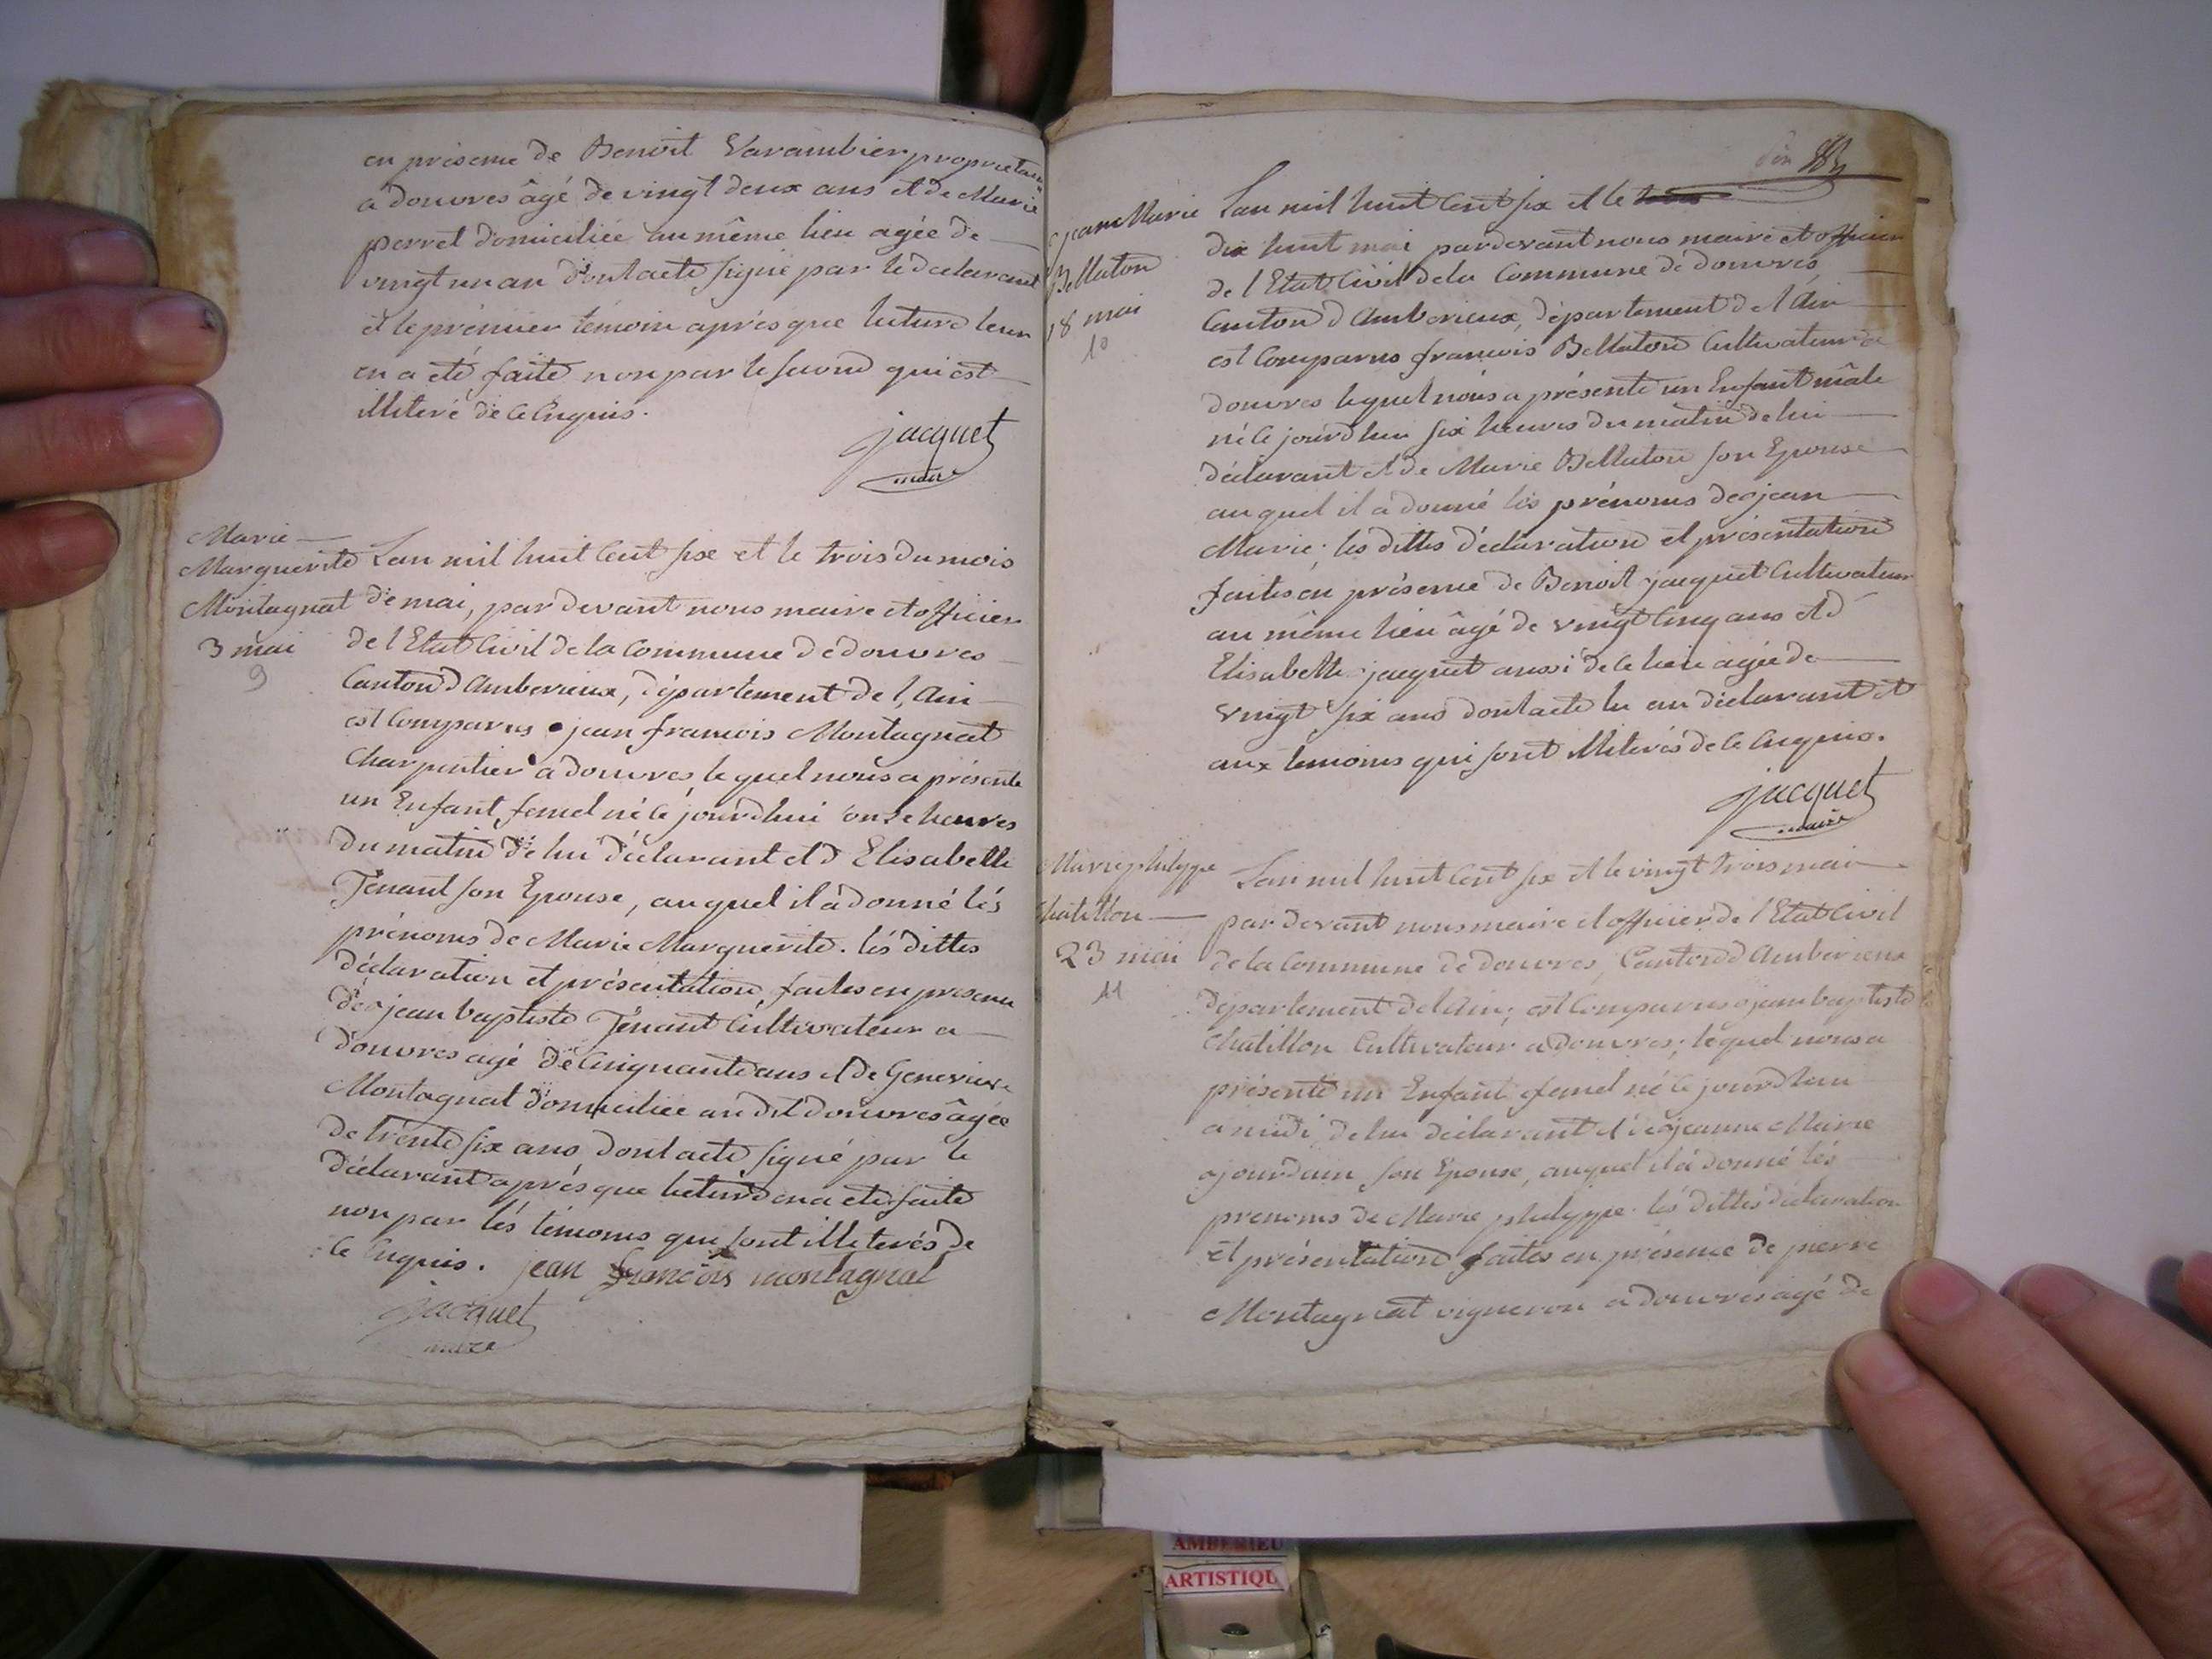 en présence de Benoit Varambier propriétaire
a douvres âgé de vingt deux ans et de Marie
perret domiciliée au même lieu agée de
vingt un an dont acte signé par le déclarant
et le prémier témoin après que lecture leur
en a eté faite non par le second qui est
illiteré de ce Enquis.
jacquet
maire
Marie
Marguerite
Montagnat
3 mai
9
Lan mil huit Cent six et le trois du mois
de mai, par devant nous maire et officier
de l Etat Civil de la Commune de douvres
Canton d Amberieux, département de l'Ain
est Comparus jean francois Montagnat
Charpentier a douvres le quel nous a présenté
un Enfant femel né ce jourdhui onse heures
du matin de lui déclarant et d Elisabelle
Tenant son Epouse, au quel il a donné lés
prénoms de Marie Marguerite. lés dittes
déclaration et présentation, faites en présence
de jean baptiste Tenant Cultivateur a
douvres agé de Cinquante ans et de Genevieve
Montagnat domiciliée au dit douvres âgée
de trente six ans dont acte signé par le
déclarant après que lecture en a eté faite
non par lés témoins qui sont illiterés de
ce Enquis. jean francois montagnat
jacquet
maire
Jean Marie
Bellaton
18 mai
10
Lan mil huit Cent six et le
dix huit mai pardevant nous maire et officier
de l Etat Civil de la Commune de douvres
Canton d Amberieux, département de l Ain
est Comparus francois Bellaton Cultivateur a
douvres lequel nous a présenté un Enfant mâle
né ce jourdhui six heures du matin de lui
déclarant et de Marie Bellaton son Epouse
au quel il a donné lés prénoms de jean
Marie; les dittes déclaration et présentation
faites en présence de Benoit jacquet Cultivateur
au même lieu âgé de vingt Cinq ans et d
Elisabelle jacquet aussi de ce lieu agée de
vingt six ans dont acte lu au déclarant et
aux temoins qui sont illiterés de ce Enquis.
jacquet
maire
Marie philyppe
Chatillon
23 mai
11
Lan mil huit Cent six et le vingt trois mai
par devant nous maire et officier de l Etat Civil
de la Commune de douvres, Canton d Amberieux
département de l Ain; est Comparus jean baptiste
Chatillon Cultivateur a douvres; lequel nous a
présenté un Enfant femel né ce jourdhui
a midi de lui déclarant et de jeanne Marie
jourdain son Epouse, auquel il a donné lés
prenoms de Marie philyppe. lés dittes déclaration
et présentation faites en présence de pierre
Montagnat vigneron a douvres agé de
AMBERIEU
ARTISTIQU